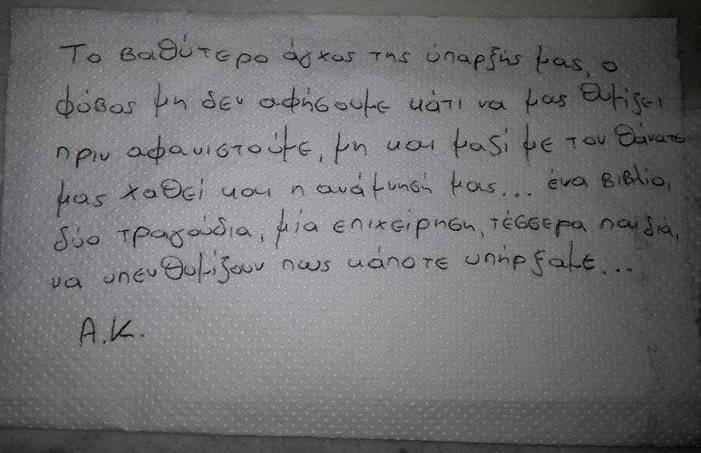 Το βαθύτερο άγχος της ύπαρξής μας, ο
φόβος μη δεν αφήσουμε κάτι να μας θυμίζει
πριν αφανιστούμε, μη και μαζί με τον θάνατο
μας χαθεί και η ανάμνησή μας... ένα βιβλίο,
δύο τραγούδια, μία επιχείρηση, τέσσερα παιδιά,
να υπενθυμίζουν πως κάποτε υπήρξαμε...
Α.Κ.